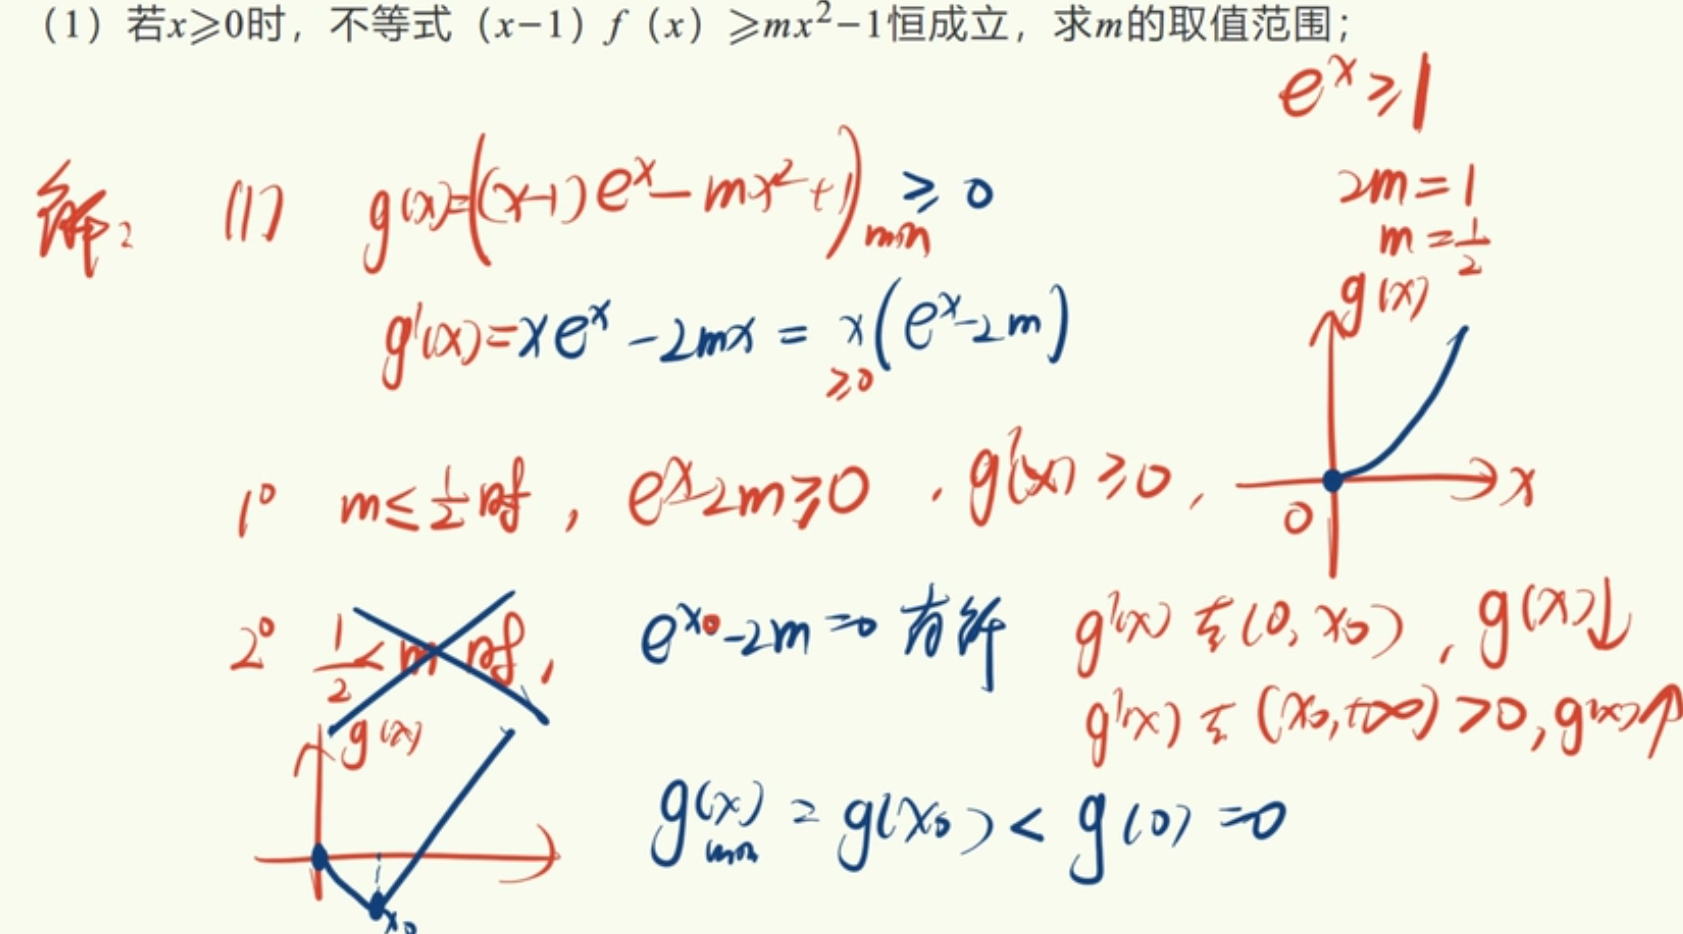 （1）若x⩾0时，不等式（x−1）f（x）⩾mx²−1恒成立，求m的取值范围；
e^x ≥ 1
2m = 1
m = 1/2
解: (1) g(x)=((x-1)e^x - mx² + 1)min ≥ 0
g'(x) = xe^x - 2mx = x(e^x - 2m)
≥0
g(x)
x
0
1° m ≤ 1/2 时, e^x - 2m ≥ 0, g'(x) ≥ 0,
2° 1/2 < m 时, e^x0 - 2m = 0 有解 g'(x) 在 (0, x0), g(x)↓
g'(x) 在 (x0, +∞) > 0, g(x)↑
g(x)
g(x)min = g(x0) < g(0) = 0
x0